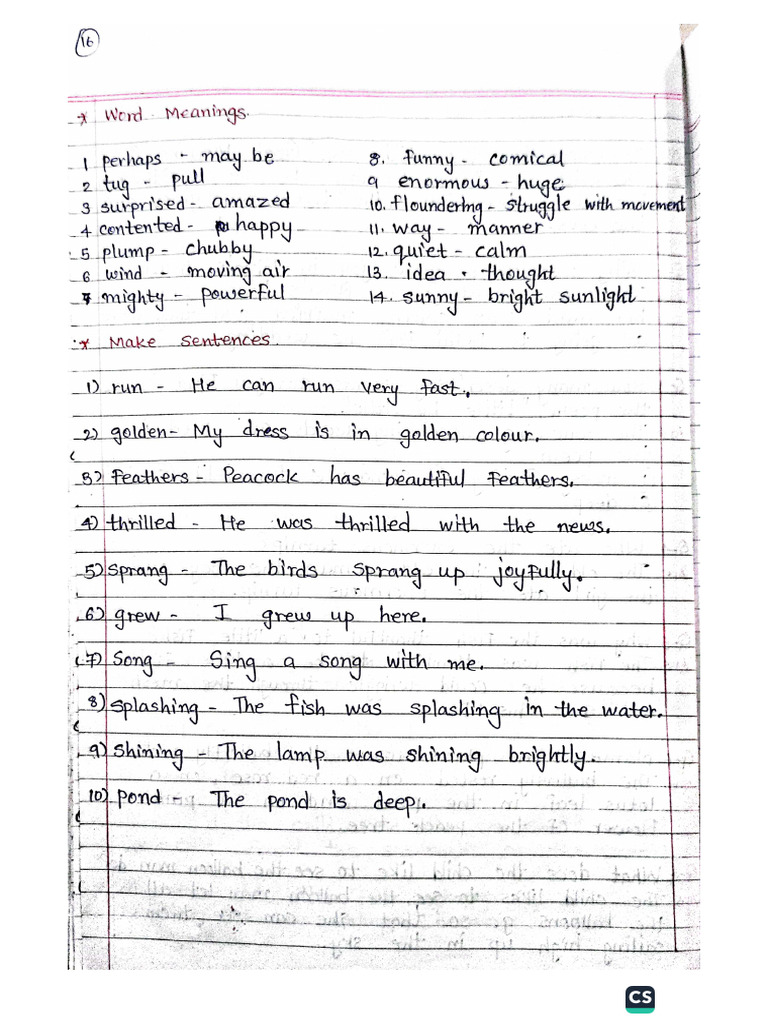 16
* Word Meanings.
1 perhaps - may be
2 tug - pull
3 surprised - amazed
4 contented - happy
5 plump - chubby
6 wind - moving air
7 mighty - powerful
8. funny - comical
9 enormous - huge
10. floundering - struggle with movement
11. way - manner
12. quiet - calm
13. idea - thought
14. sunny - bright sunlight
* Make Sentences.
1) run - He can run very fast.
2) golden - My dress is in golden colour.
3) feathers - Peacock has beautiful feathers.
4) thrilled - He was thrilled with the news.
5) sprang - The birds sprang up joyfully.
6) grew - I grew up here.
7) Song - Sing a song with me.
8) splashing - The fish was splashing in the water.
9) shining - The lamp was shining brightly.
10) pond - The pond is deep.
CS